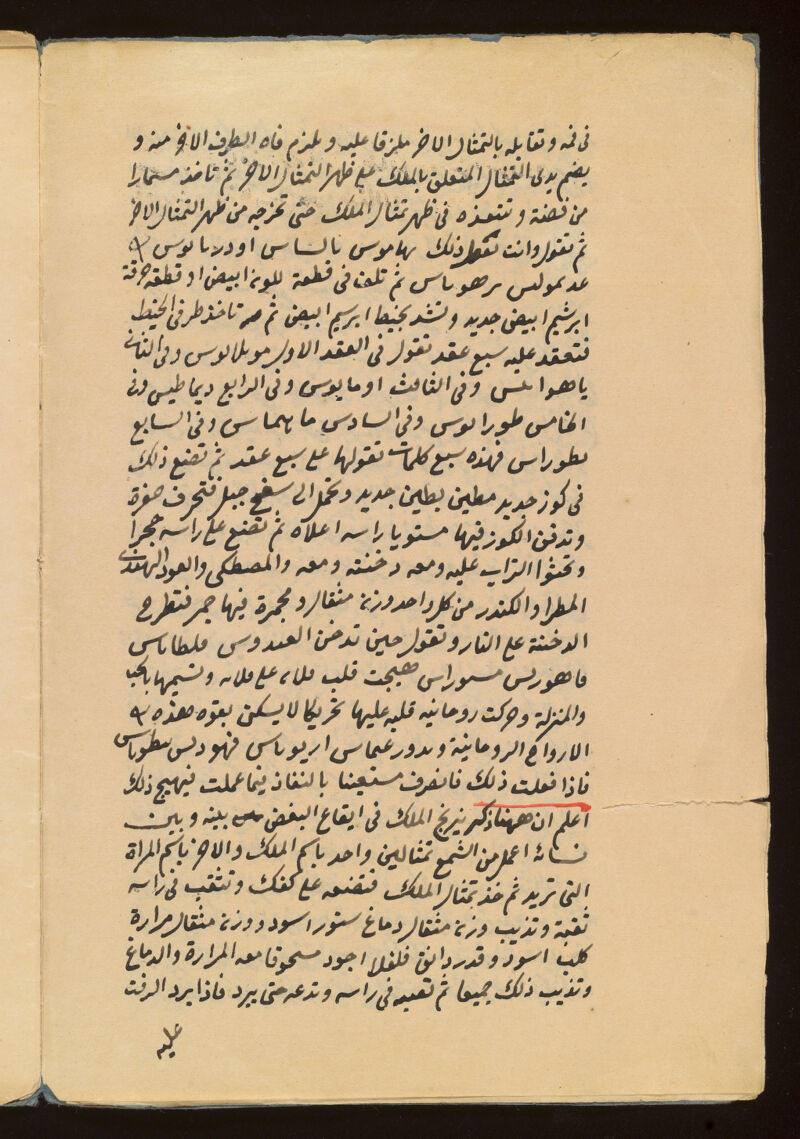 فى فمه وتقابله بالتمثال الاخر ملزقا عليه ويلزم فاه الطرف الاخر منه و
يضم يدى التمثال المتعلق بالملك على ظهر التمثال الاخر ثم تاخذ مسمارا
من فضة وتنفذه فى ظهر تمثال الملك حتى تخرجه من ظهر التمثال الاخر
ثم تقول وانت تفعل ذلك بهاموس
ثم تلف فى قطعة ابيض او قطعة خرقة
ابرشيم ابيض جديد وتشد بخيط ابرسيم ابيض ثم تاخذ طرفى الخيط
فتعقد عليه سبع عقد تقول فى العقد الاول وفى الثانى
ياهواس وفى الثالث اومايوس وفى الرابع ديماطيس وفى
الخامس طورانوس وفى السادس وفى السابع
بطوراس فهذه سبع كلمات تقولها على سبع عقد ثم تضع ذلك
فى كوز جديد مطين بطين جديد وتحمل الى سفح جبل فتحفر حفرة
وتدفن الكوز فيها مستويا راسه اعلاه ثم تضع على راسه حجرا
وتحثوا التراب عليه ومعه دخنته ومعه والمصطكى والعود الهندى
المطرا والكندر من كل واحد وزن مثقال ومجمرة فيها جمر فتطرح
الدخنة على النار وتقول حين تدخن
هيجت قلب فلان على فلانه وتسيمها بالحب
والمنزلة وحركت روحانيه قلبه عليها تحريكا لا يسكن بقوه هذه
الارواح الروحانية
فاذا فعلت ذلك فانصرف مستعينا بالنفاذ فيما عملت فيهيج ذلك
اعلم ان ههنا ذكر نيرنج الملك فى ايقاع البغض بينه وبين
نسائه اعمل من الشمع تمثالين واحد باسم الملك والاخر باسم المراة
التى تريد ثم خذ تمثال الملك فتضعه على كفك وتثقب فى راسه
ثقبة وتذيب وزن مثقال دماغ سنور اسود ووزن مثقال مرارة
كلب اسود وقدر دانق فلفلا اجود مسحوقا معه المرارة والدماغ
وتذيب ذلك جميعا ثم تصبه فى راسه وتدعه حتى يبرد فاذا برد الزفت
عليه